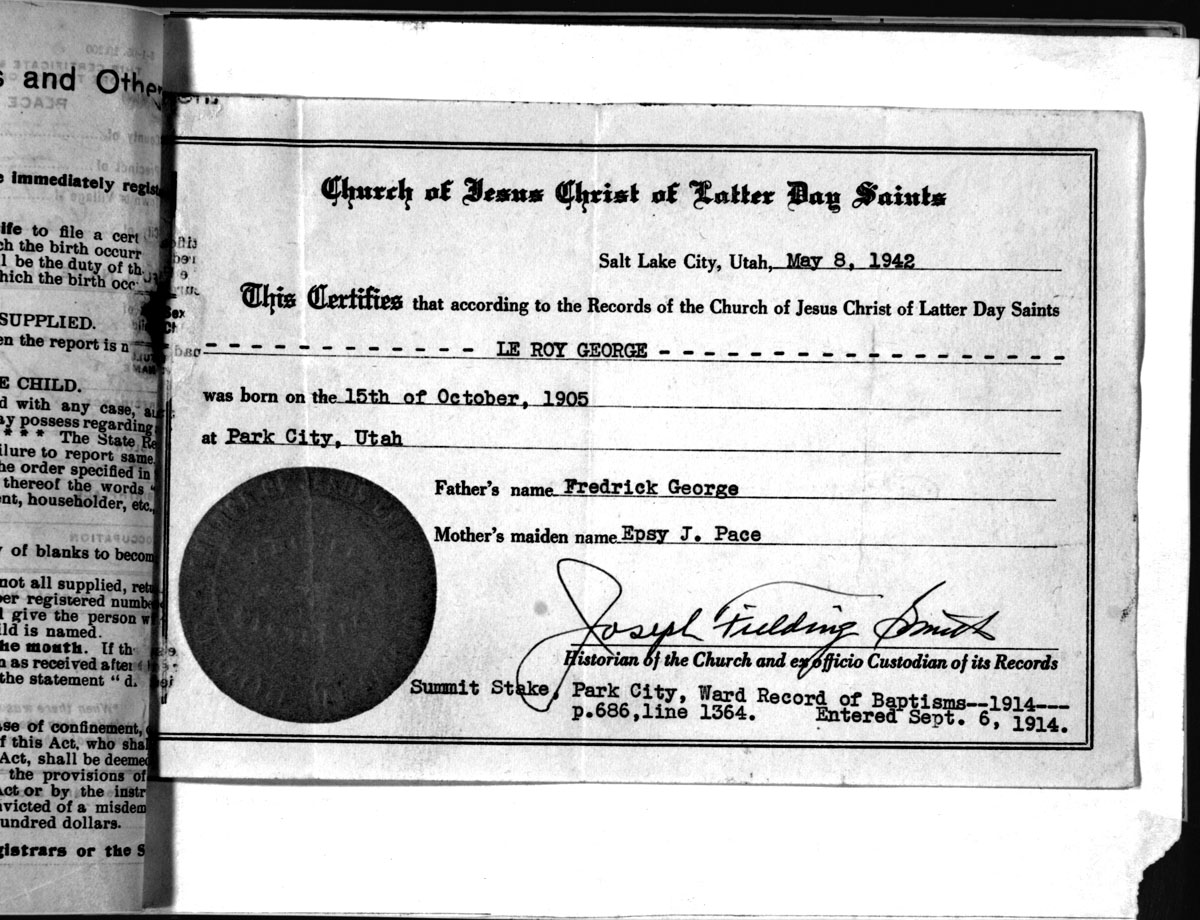 s and Other
e immediately regist
ife to file a cert
ch the birth occurr
l be the duty of th
hich the birth occ
SUPPLIED.
en the report is n
E CHILD.
d with any case, a
ay possess regarding
* * * * The State Re
ilure to report same
he order specified in
thereof the words "
nt, householder, etc.,
y of blanks to becom
not all supplied, retu
er registered numbe
l give the person w
ild is named.
he month. If th
n as received after
the statement " d
se of confinement,
f this Act, who shal
Act, shall be deemed
the provisions of
Act or by the instr
nvicted of a misdem
undred dollars.
gistrars or the S
Church of Jesus Christ of Latter Day Saints
Salt Lake City, Utah, May 8, 1942
This Certifies that according to the Records of the Church of Jesus Christ of Latter Day Saints
- - - - - - - - - - - - - LE ROY GEORGE - - - - - - - - - - - - - - - - - -
was born on the 15th of October, 1905
at Park City, Utah
Father's name Fredrick George
Mother's maiden name Epsy J. Pace
Joseph Fielding Smith
Historian of the Church and ex officio Custodian of its Records
Summit Stake, Park City, Ward Record of Baptisms--1914---
p.686,line 1364. Entered Sept. 6, 1914.